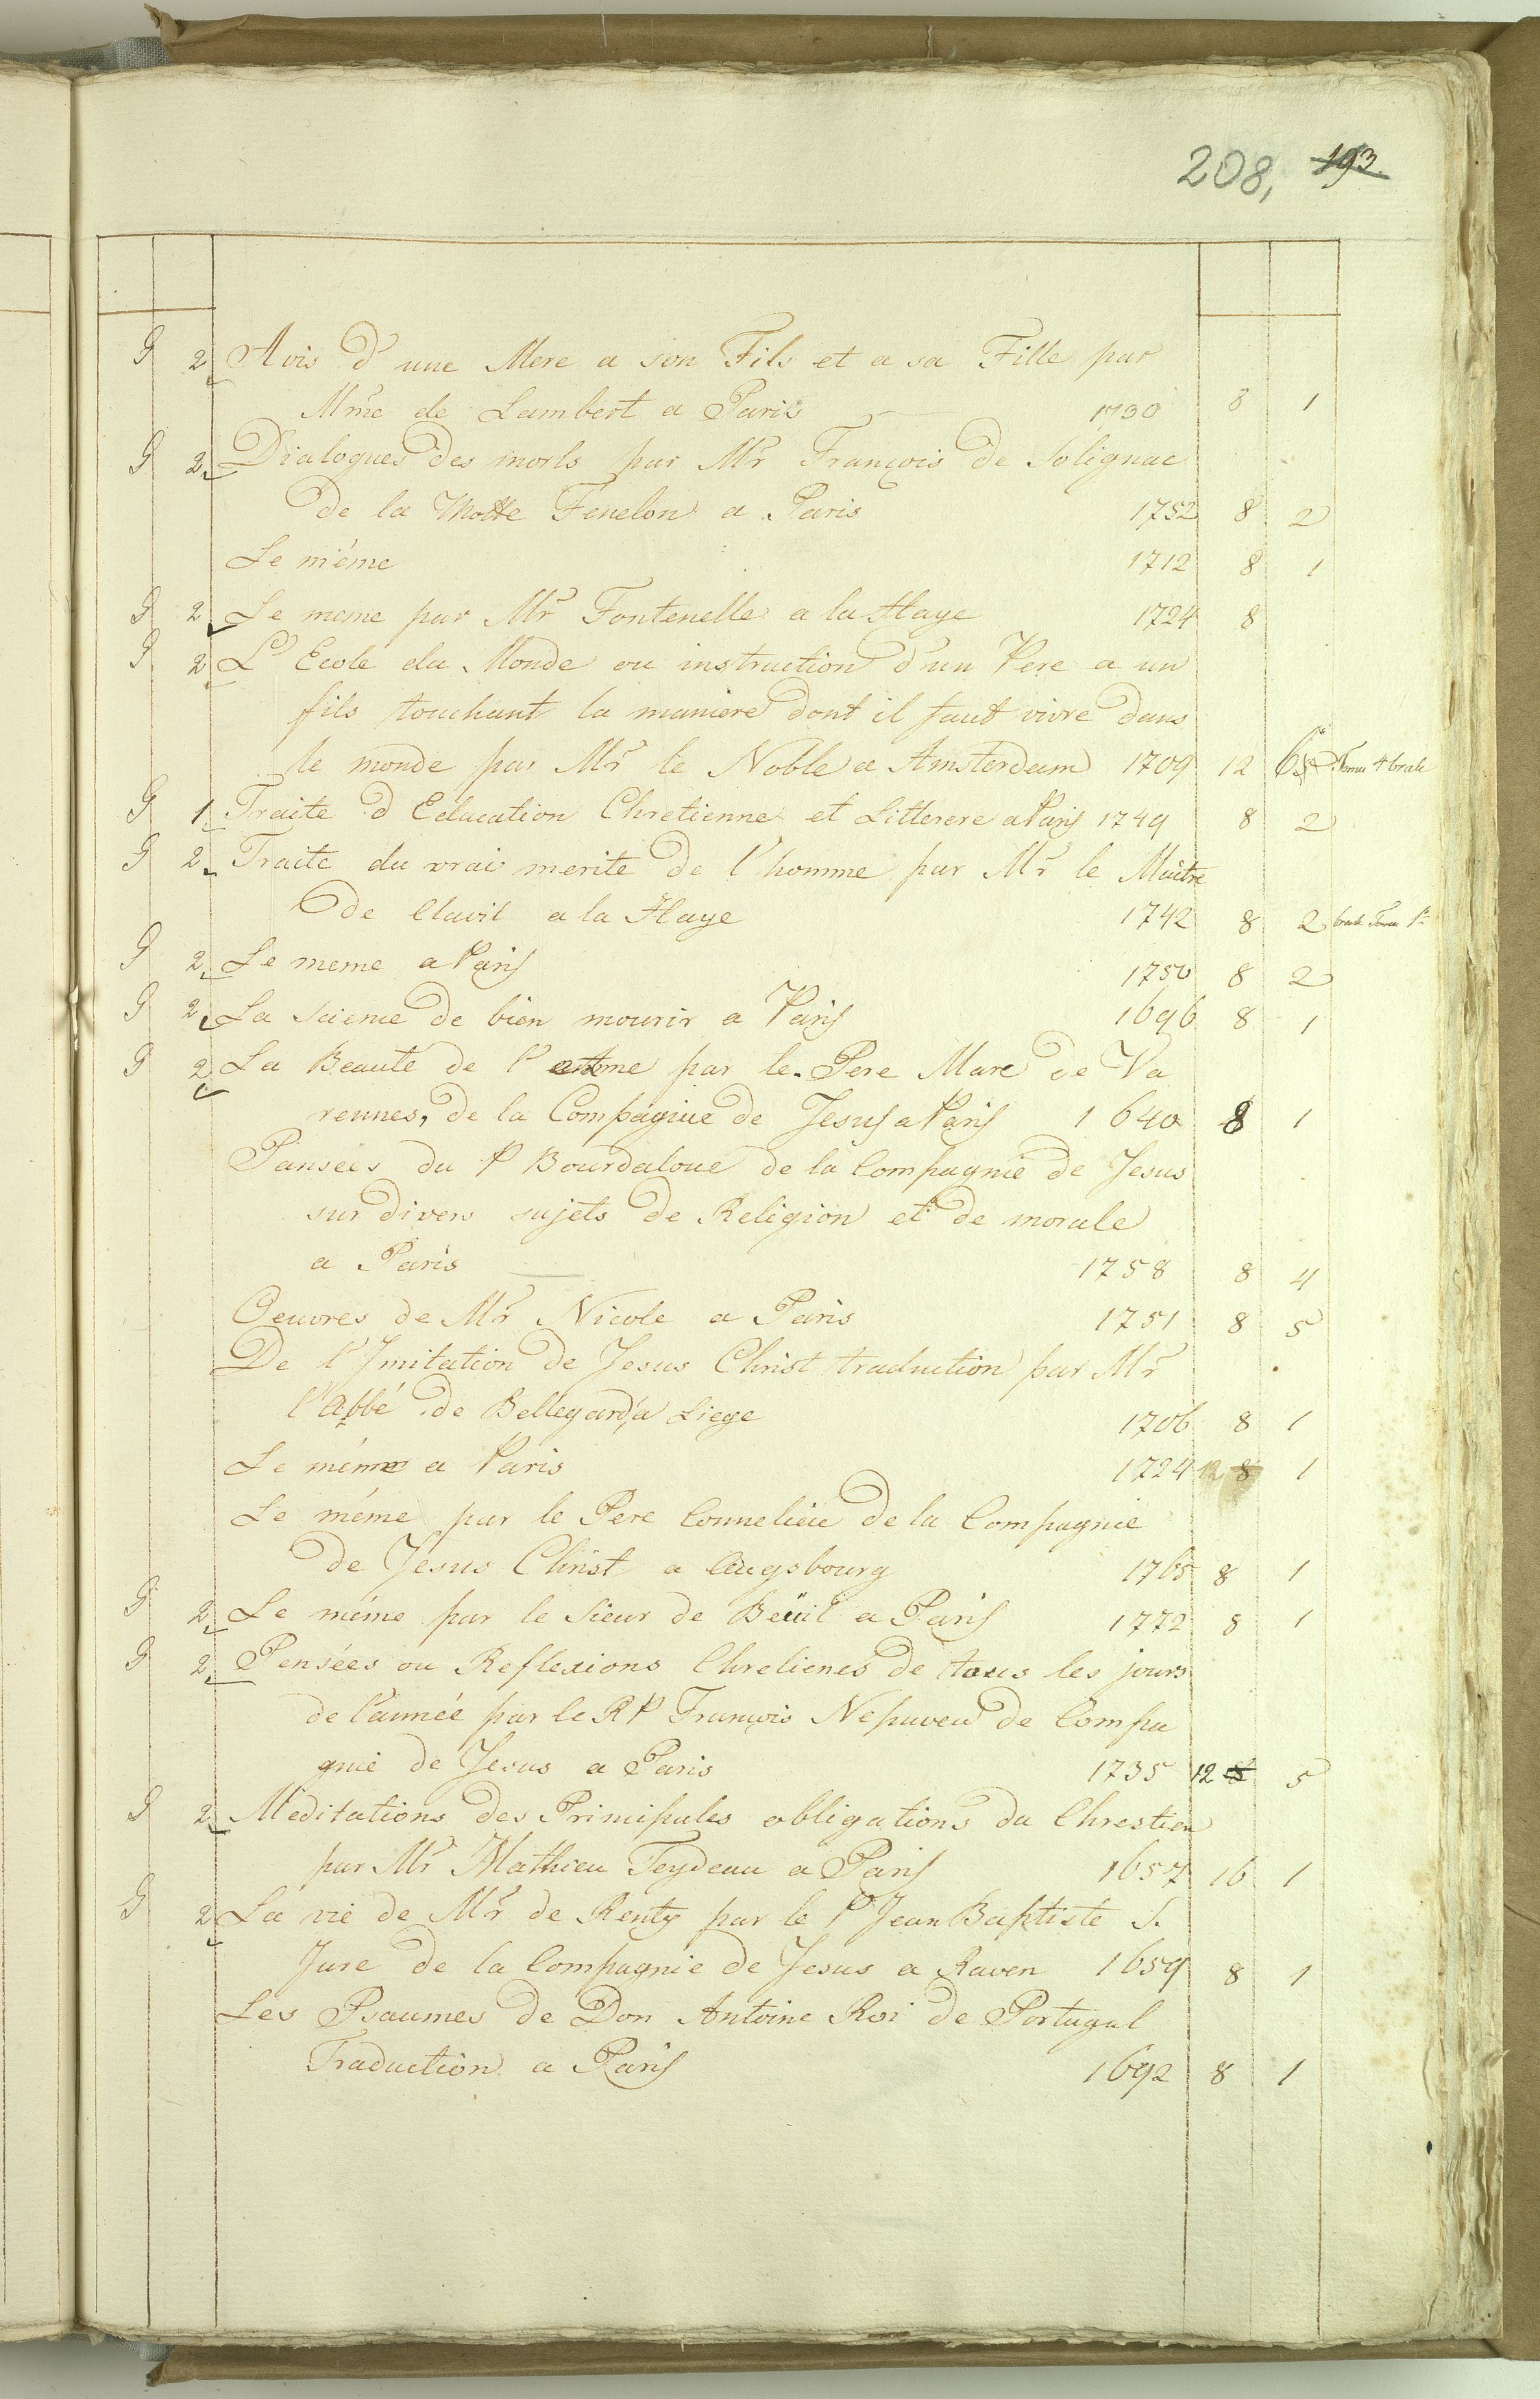 208, 193.
G 2 Avis d'une Mere a son Fils et a sa Fille par
Mme de Lambert a Paris 1730 8 1
G 2 Dialogues des morts par Mr François de Solignac
de la Motte Fenelon a Paris 1752 8 2
Le même 1712 8 1
G 2 Le meme par Mr Fontenelle a la Haye 1724 8
G 2 L'Ecole du Monde ou instruction d'un Pere a un
fils touchant la maniere dont il faut vivre dans
le monde par Mr le Noble a Amsterdam 1709 12 6 4 brak
G 1 Traite d Education Chretienne et Litterere a Paris 1749 8 2
G 2 Traite du vrai merite de l'homme par Mr le Maitre
de Clavil a la Haye 1742 8 2 brak Tom 1
G 2 Le meme a Paris 1750 8 2
G 2 La science de bien mourir a Paris 1696 8 1
G 2 La Beauté de l'ame par le Pere Marc de Va
rennes, de la Compagnie de Jesus a Paris 1640 8 1
Pansées du P Bourdaloue de la Compagnie de Jesus
sur divers sujets de Religion et de morale
a Paris 1758 8 4
Oeuvres de Mr Nicole a Paris 1751 8 5
De l'Imitation de Jesus Christ traduction par Mr
l'Abbé de Bellegard, a Liege 1706 8 1
Le même a Paris 1724 12 8 1
Le même par le Pere de la Compagnie
de Jesus Christ a Augsbourg 1765 8 1
G 2 Le même par le Sieur de Beüil a Paris 1772 8 1
G 2 Pensées ou Reflexions Chretienes de tous les jours
de l'année par le R P François Nepuveu de Compa
gnie de Jesus a Paris 1735 12 8 5
G 2 Meditations des Principales obligations du Chrestien
par Mr Mathieu Feydeau a Paris 1657 16 1
G 2 La vie de Mr de Renty par le P Jean Baptiste S.
Jure de la Compagnie de Jesus a Rauen 1659 8 1
Les Psaumes de Don Antoine Roi de Portugal
Traduction a Paris 1692 8 1